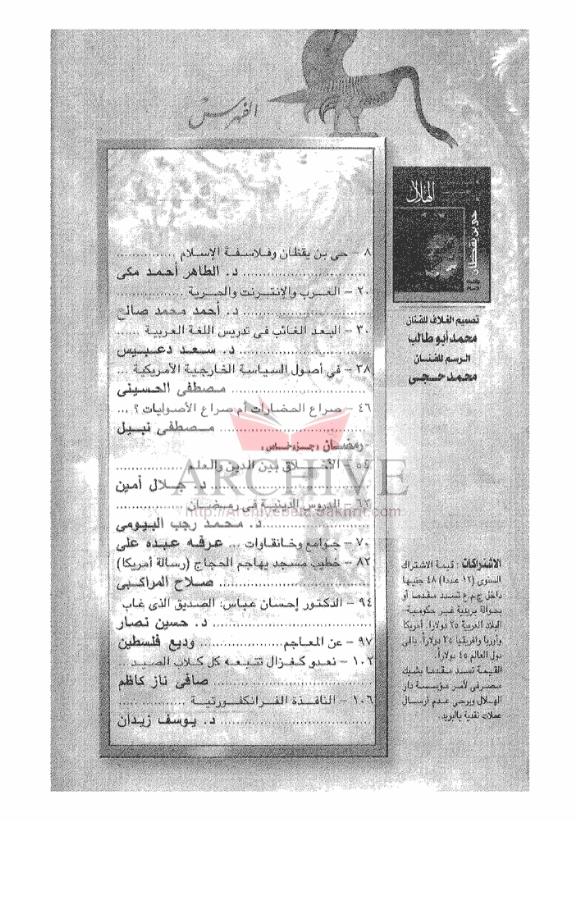 الفهرس
٨ – حى بن يقظان وفلاسفة الإسلام ..............
.............................. د. الطاهر أحمد مكى
٢٠ – العرب والإنترنت والحرية ................
.............................. د. أحمد محمد صالح
٣٠ – البعد الغائب فى تدريس اللغة العربية ......
.............................. د. سعد دعبيس
٣٨ – فى أصول السياسة الخارجية الأمريكية ...
.............................. مصطفى الحسينى
٤٦ – صراع الحضارات أم صراع الأصوليات ؟ ...
.............................. مصطفى نبيل
-رمضان «جزء خاص»
٥٤ – الأخلاق بين الدين والعلم ................
.............................. د. جلال أمين
٦٢ – الدروس الدينية فى رمضان ................
.............................. د. محمد رجب البيومى
٧٠ – جوامع وخانقاوات ... عرفه عبده على
٨٢ – خطيب مسجد يهاجم الحجاج (رسالة أمريكا)
.............................. صلاح المراكبى
٩٤ – الدكتور إحسان عباس: الصديق الذى غاب
.............................. د. حسين نصار
٩٧ – عن المعاجم..................... وديع فلسطين
١٠٢ – نعدو كغزال تتبعه كل كلاب الصيد ..
.............................. صافى ناز كاظم
١٠٦ – النافذة الفرانكفورتية ................
.............................. د. يوسف زيدان
الهلال
حى بن يقظان
تصميم الغلاف للفنان
محمد أبو طالب
الرسم للفنان
محمد حجى
الاشتراكات : قيمة الاشتراك
السنوى (١٢ عددا) ٤٨ جنيها
داخل ج.م.ع تسدد مقدما أو
بحوالة بريدية غير حكومية-
البلاد العربية ٢٥ دولارا. أمريكا
وأوربا وافريقيا ٣٥ دولاراً. باقى
دول العالم ٤٥ دولاراً.
القيمة تسدد مقدما بشيك
مصرفى لأمر مؤسسة دار
الهلال ويرجى عدم إرسال
عملات نقدية بالبريد.
ARCHIVE
http://Archivebeta.Sakhrit.com